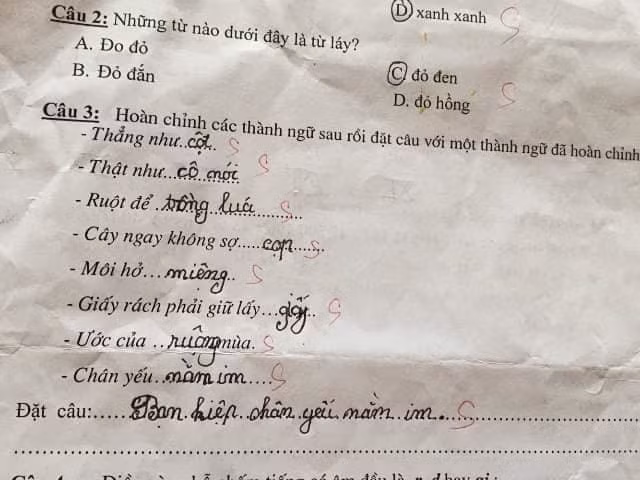 D xanh xanh S
Câu 2: Những từ nào dưới đây là từ láy?
A. Đo đỏ
B. Đỏ đắn
C đỏ đen
D. đỏ hồng S
Câu 3: Hoàn chỉnh các thành ngữ sau rồi đặt câu với một thành ngữ đã hoàn chỉnh
- Thẳng như..cột.. S
- Thật như...cô mói S
- Ruột để .trồng luá............ S
- Cây ngay không sợ.....cọp.... S
- Môi hở...miệng.. S
- Giấy rách phải giữ lấy...giấy.. S
- Ước của ..ruộng mùa. S
- Chân yếu..nằm im.... S
Đặt câu:.....Bạn hiệp chân yếu nằm im. S